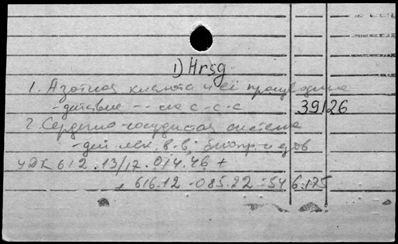 1) Hrsg
1. Азотная кислота и её производные
- действие -- на с-с-с
39/26
2. Сердечно-сосудистая система
- дей. лек. в-в, биопр-в
УДК 612.13/17.014.46 +
+ 616.12-085.22:546.175